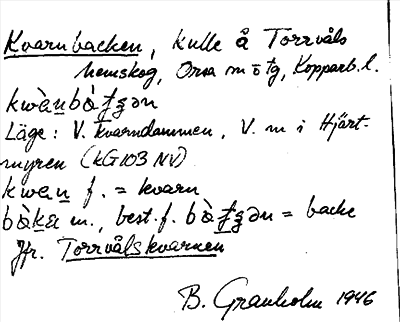 Kvarnbacken, kulle å Torrvåls
hemskog, Orsa m o tg, Kopparb. l.
kwànbòʈʂən
Läge: V. kvarndammen, V. m i Hjärt-
myren (KG103 NV)
kwɛn f. = kvarn
bòkɛ m., best. f. bòʈʂən = backe
Jfr. Torrvålskvarnen
B. Granholm 1946